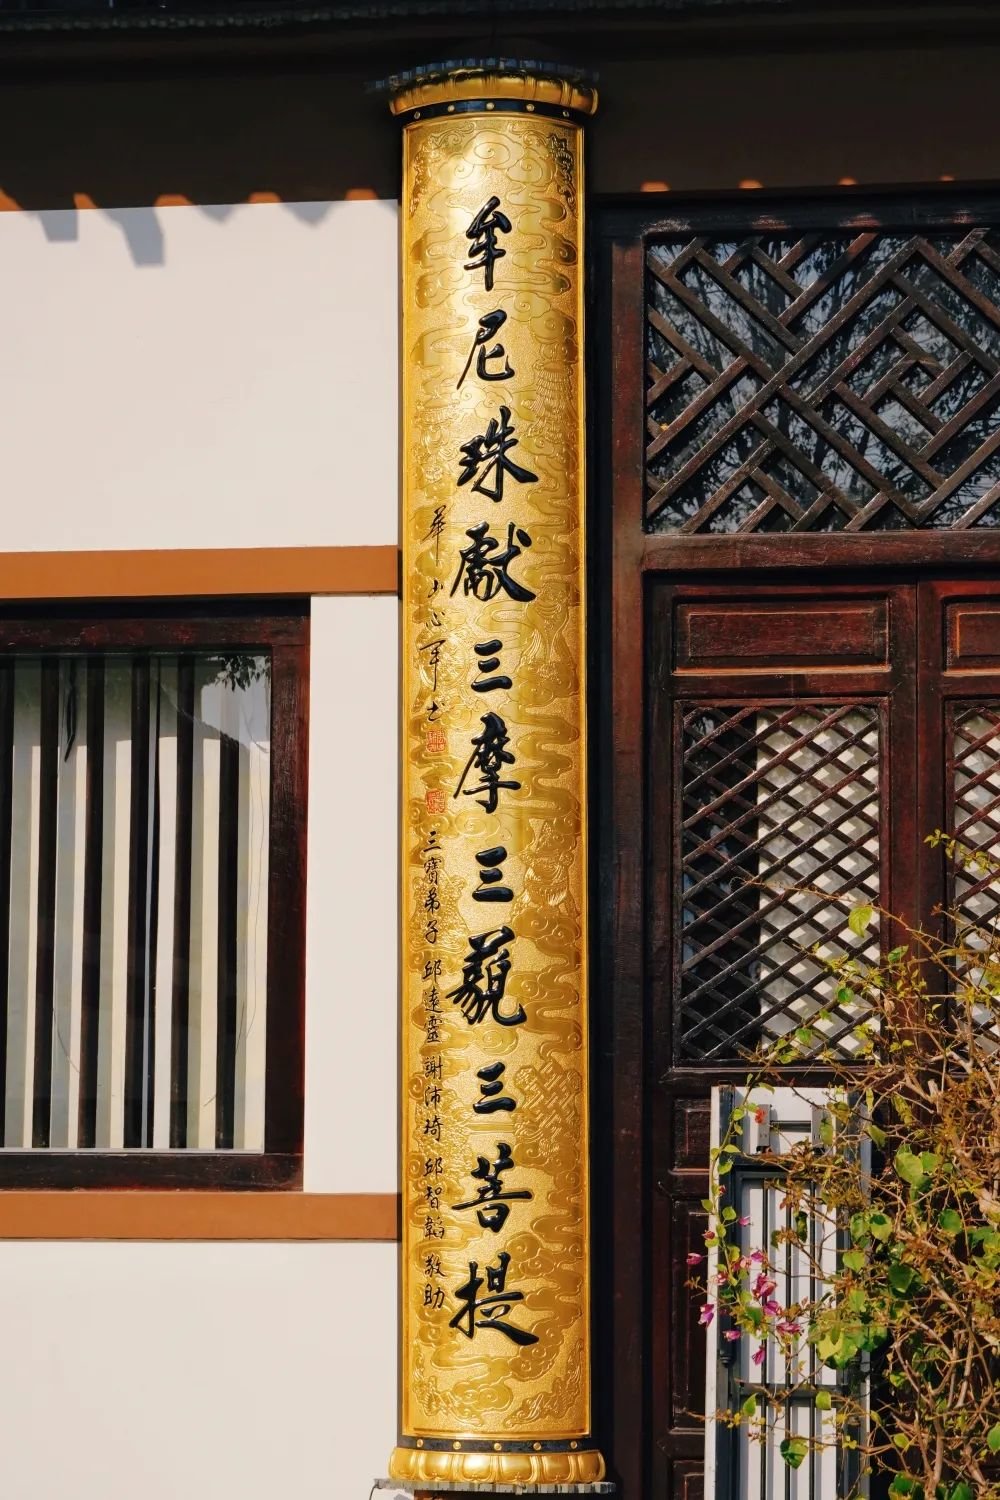 牟尼珠獻三摩三藐三菩提
華山心軍書
三寶弟子 邱遠靈 謝沛琦 邱智韜 敬助